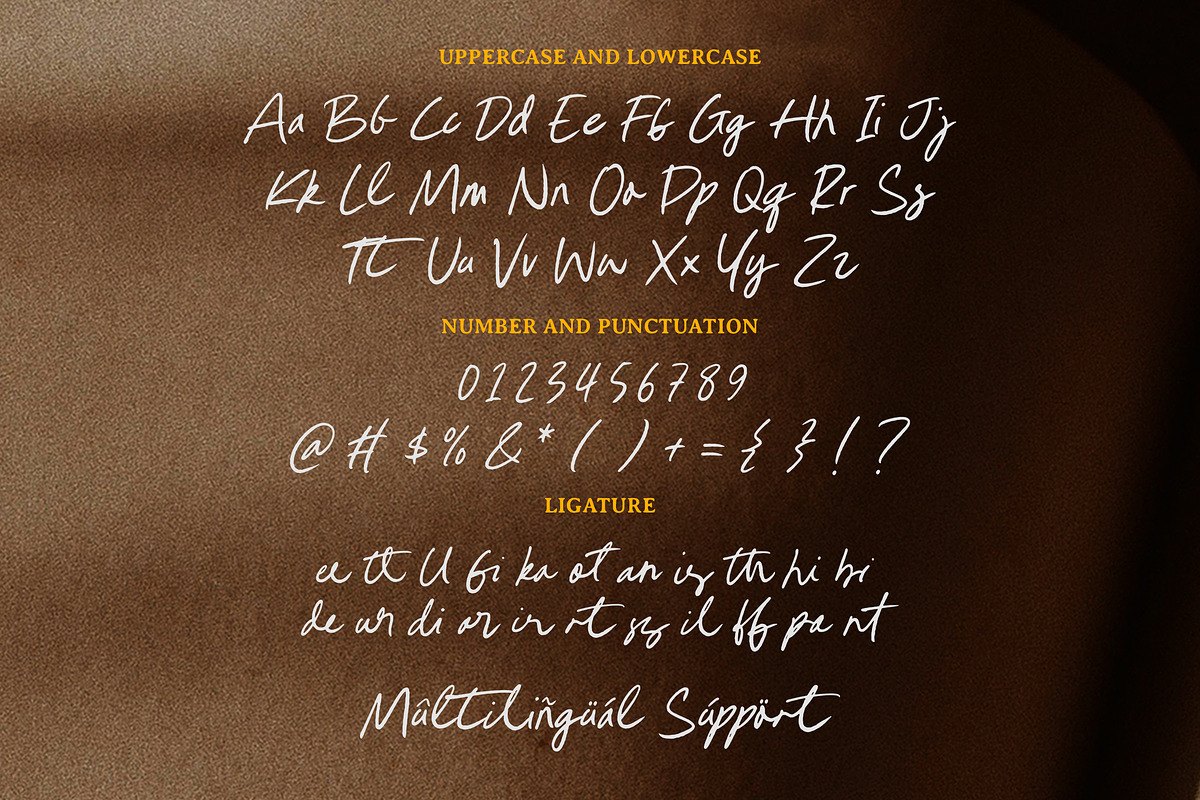 UPPERCASE AND LOWERCASE
Aa Bb Cc Dd Ee Ff Gg Hh Ii Jj
Kk Ll Mm Nn Oo Pp Qq Rr Ss
Tt Uu Vv Ww Xx Yy Zz
NUMBER AND PUNCTUATION
0123456789
@ # $ % & * ( ) + = { } ! ?
LIGATURE
ee tt ll fi ka ot an is th hi bi
de ur di or ir rt ss il ff pa nt
Mûltiliñgüál Súppört